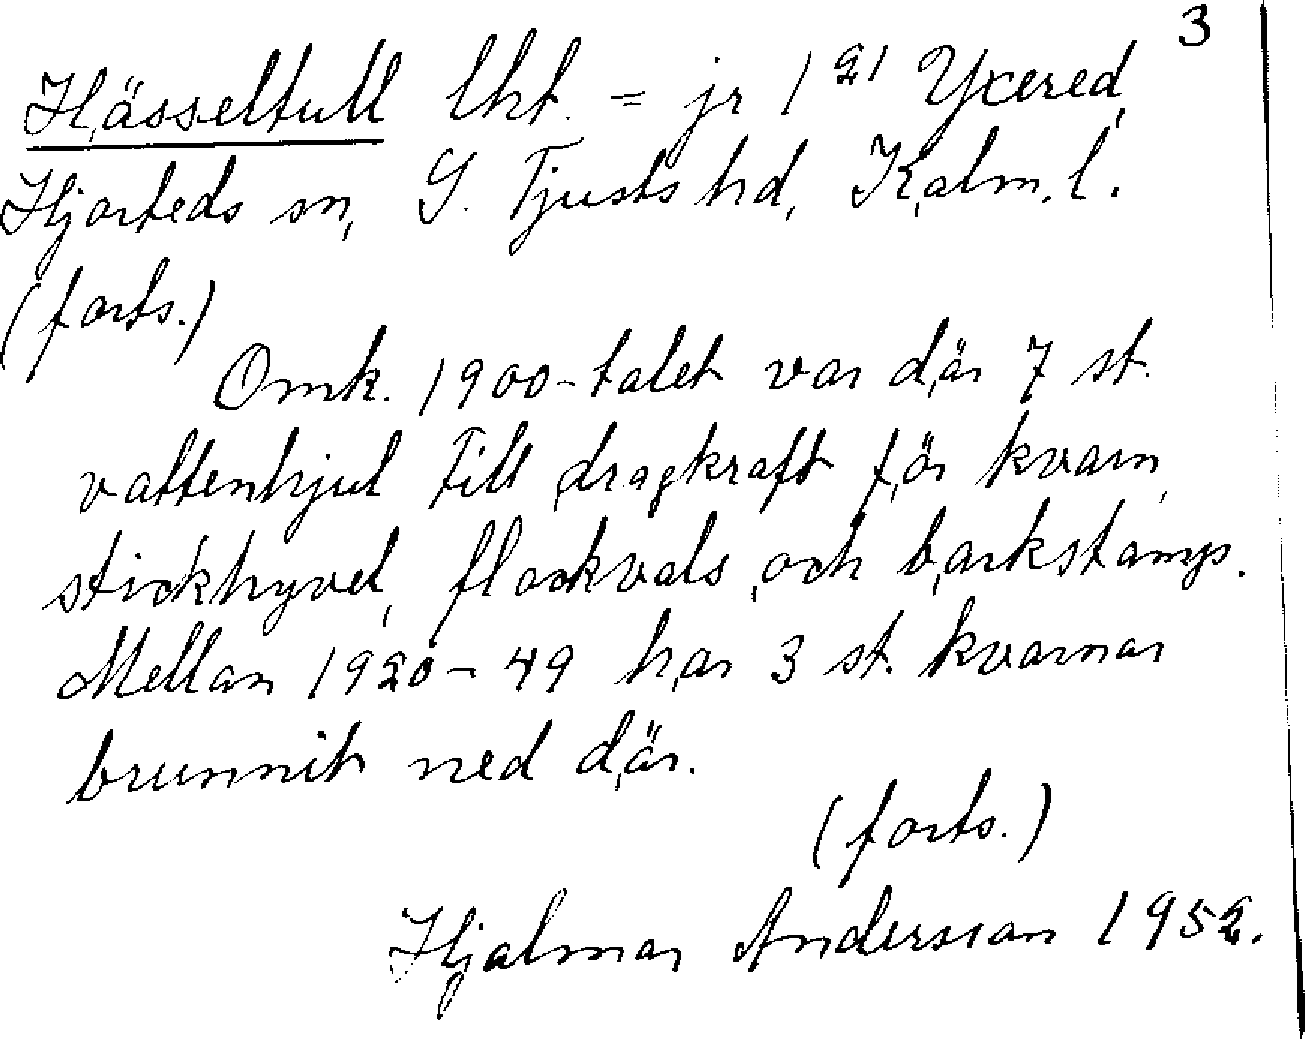 3
Hässeltull lht. = jr 1²¹ Yxered,
Hjorteds sn, S. Tjusts hd, Kalm. l.
(forts.)
Omk. 1900-talet var där 7 st.
vattenhjul till dragkraft för kvarn,
stickhyvel, flockvals och barkstamp.
Mellan 1920-49 har 3 st. kvarnar
brunnit ned där.
(forts.)
Hjalmar Andersson 1952.